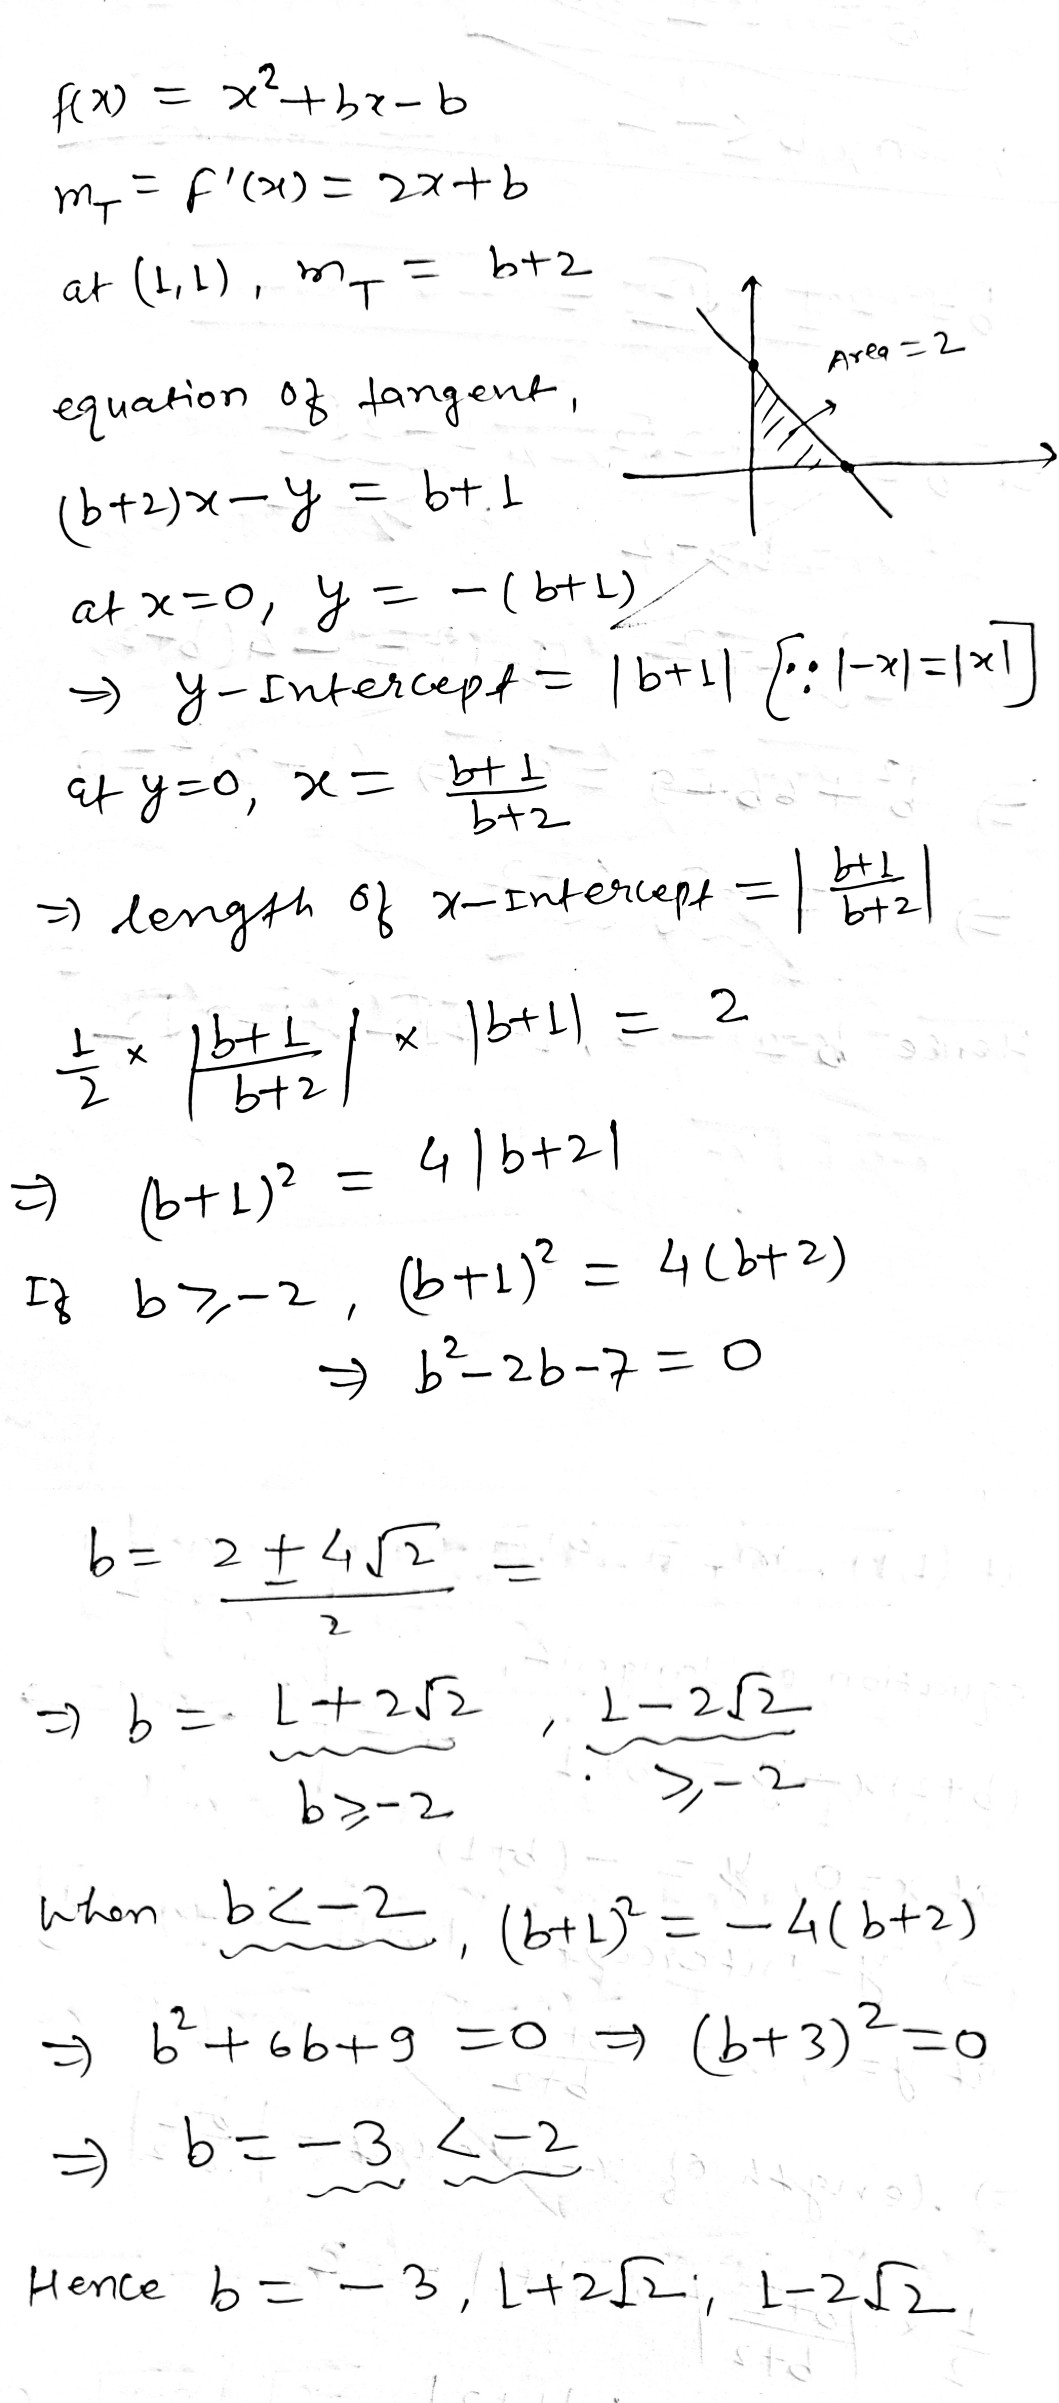 f(x) = x²+bx-b
m_T = f'(x) = 2x+b
at (1,1), m_T = b+2
Area = 2
equation of tangent,
(b+2)x-y = b+1
at x=0, y = -(b+1)
⇒ y-Intercept = |b+1| [∵ |-x|=|x|]
at y=0, x = (b+1)/(b+2)
⇒ length of x-Intercept = |(b+1)/(b+2)|
1/2 × |(b+1)/(b+2)| × |b+1| = 2
⇒ (b+1)² = 4|b+2|
If b⩾-2, (b+1)² = 4(b+2)
⇒ b²-2b-7=0
b = (2±4√2)/2 =
⇒ b = 1+2√2, 1-2√2
b⩾-2 ⩾-2
When b<-2, (b+1)² = -4(b+2)
⇒ b²+6b+9 =0 ⇒ (b+3)²=0
⇒ b = -3 <-2
Hence b = -3, 1+2√2, 1-2√2